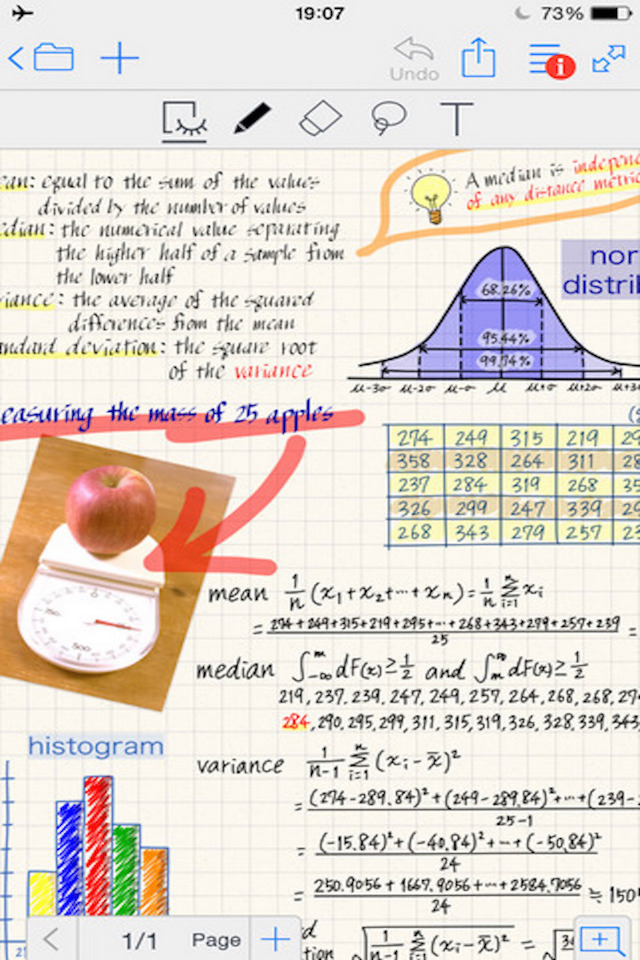 19:07
73%
Undo
i
T
ean: equal to the sum of the values
divided by the number of values
edian: the numerical value separating
the higher half of a sample from
the lower half
riance: the average of the squared
differences from the mean
andard deviation: the square root
of the variance
A median is independ
of any distance metric
nor
distrib
68.26%
95.44%
99.74%
μ-3σ μ-2σ μ-σ μ μ+σ μ+2σ μ+3σ
easuring the mass of 25 apples
274 249 315 219 29
358 328 264 311 28
237 284 319 268 35
326 299 247 339 29
268 343 279 257 23
0
500
mean 1/n (x₁+x₂+⋯+xₙ) = 1/n Σⁿᵢ₌₁ xᵢ
= 274+249+315+219+295+⋯+268+343+279+257+239 / 25 =
median ∫ᵐ₋∞ dF(x) ≥ 1/2 and ∫∞ₘ dF(x) ≥ 1/2
219, 237, 239, 247, 249, 257, 264, 268, 268, 27
284, 290, 295, 299, 311, 315, 319, 326, 328, 339, 343,
histogram
variance 1/n-1 Σⁿᵢ₌₁ (xᵢ - x̄)²
= (274-289.84)² + (249-289.84)² + ⋯ + (239- / 25-1
= (-15.84)² + (-40.84)² + ⋯ + (-50.84)² / 24
= 250.9056 + 1667.9056 + ⋯ + 2584.7056 / 24 ≒ 150
rd
tion √ 1/n-1 Σⁿᵢ₌₁ (xᵢ - x̄)² = √
21
1/1 Page